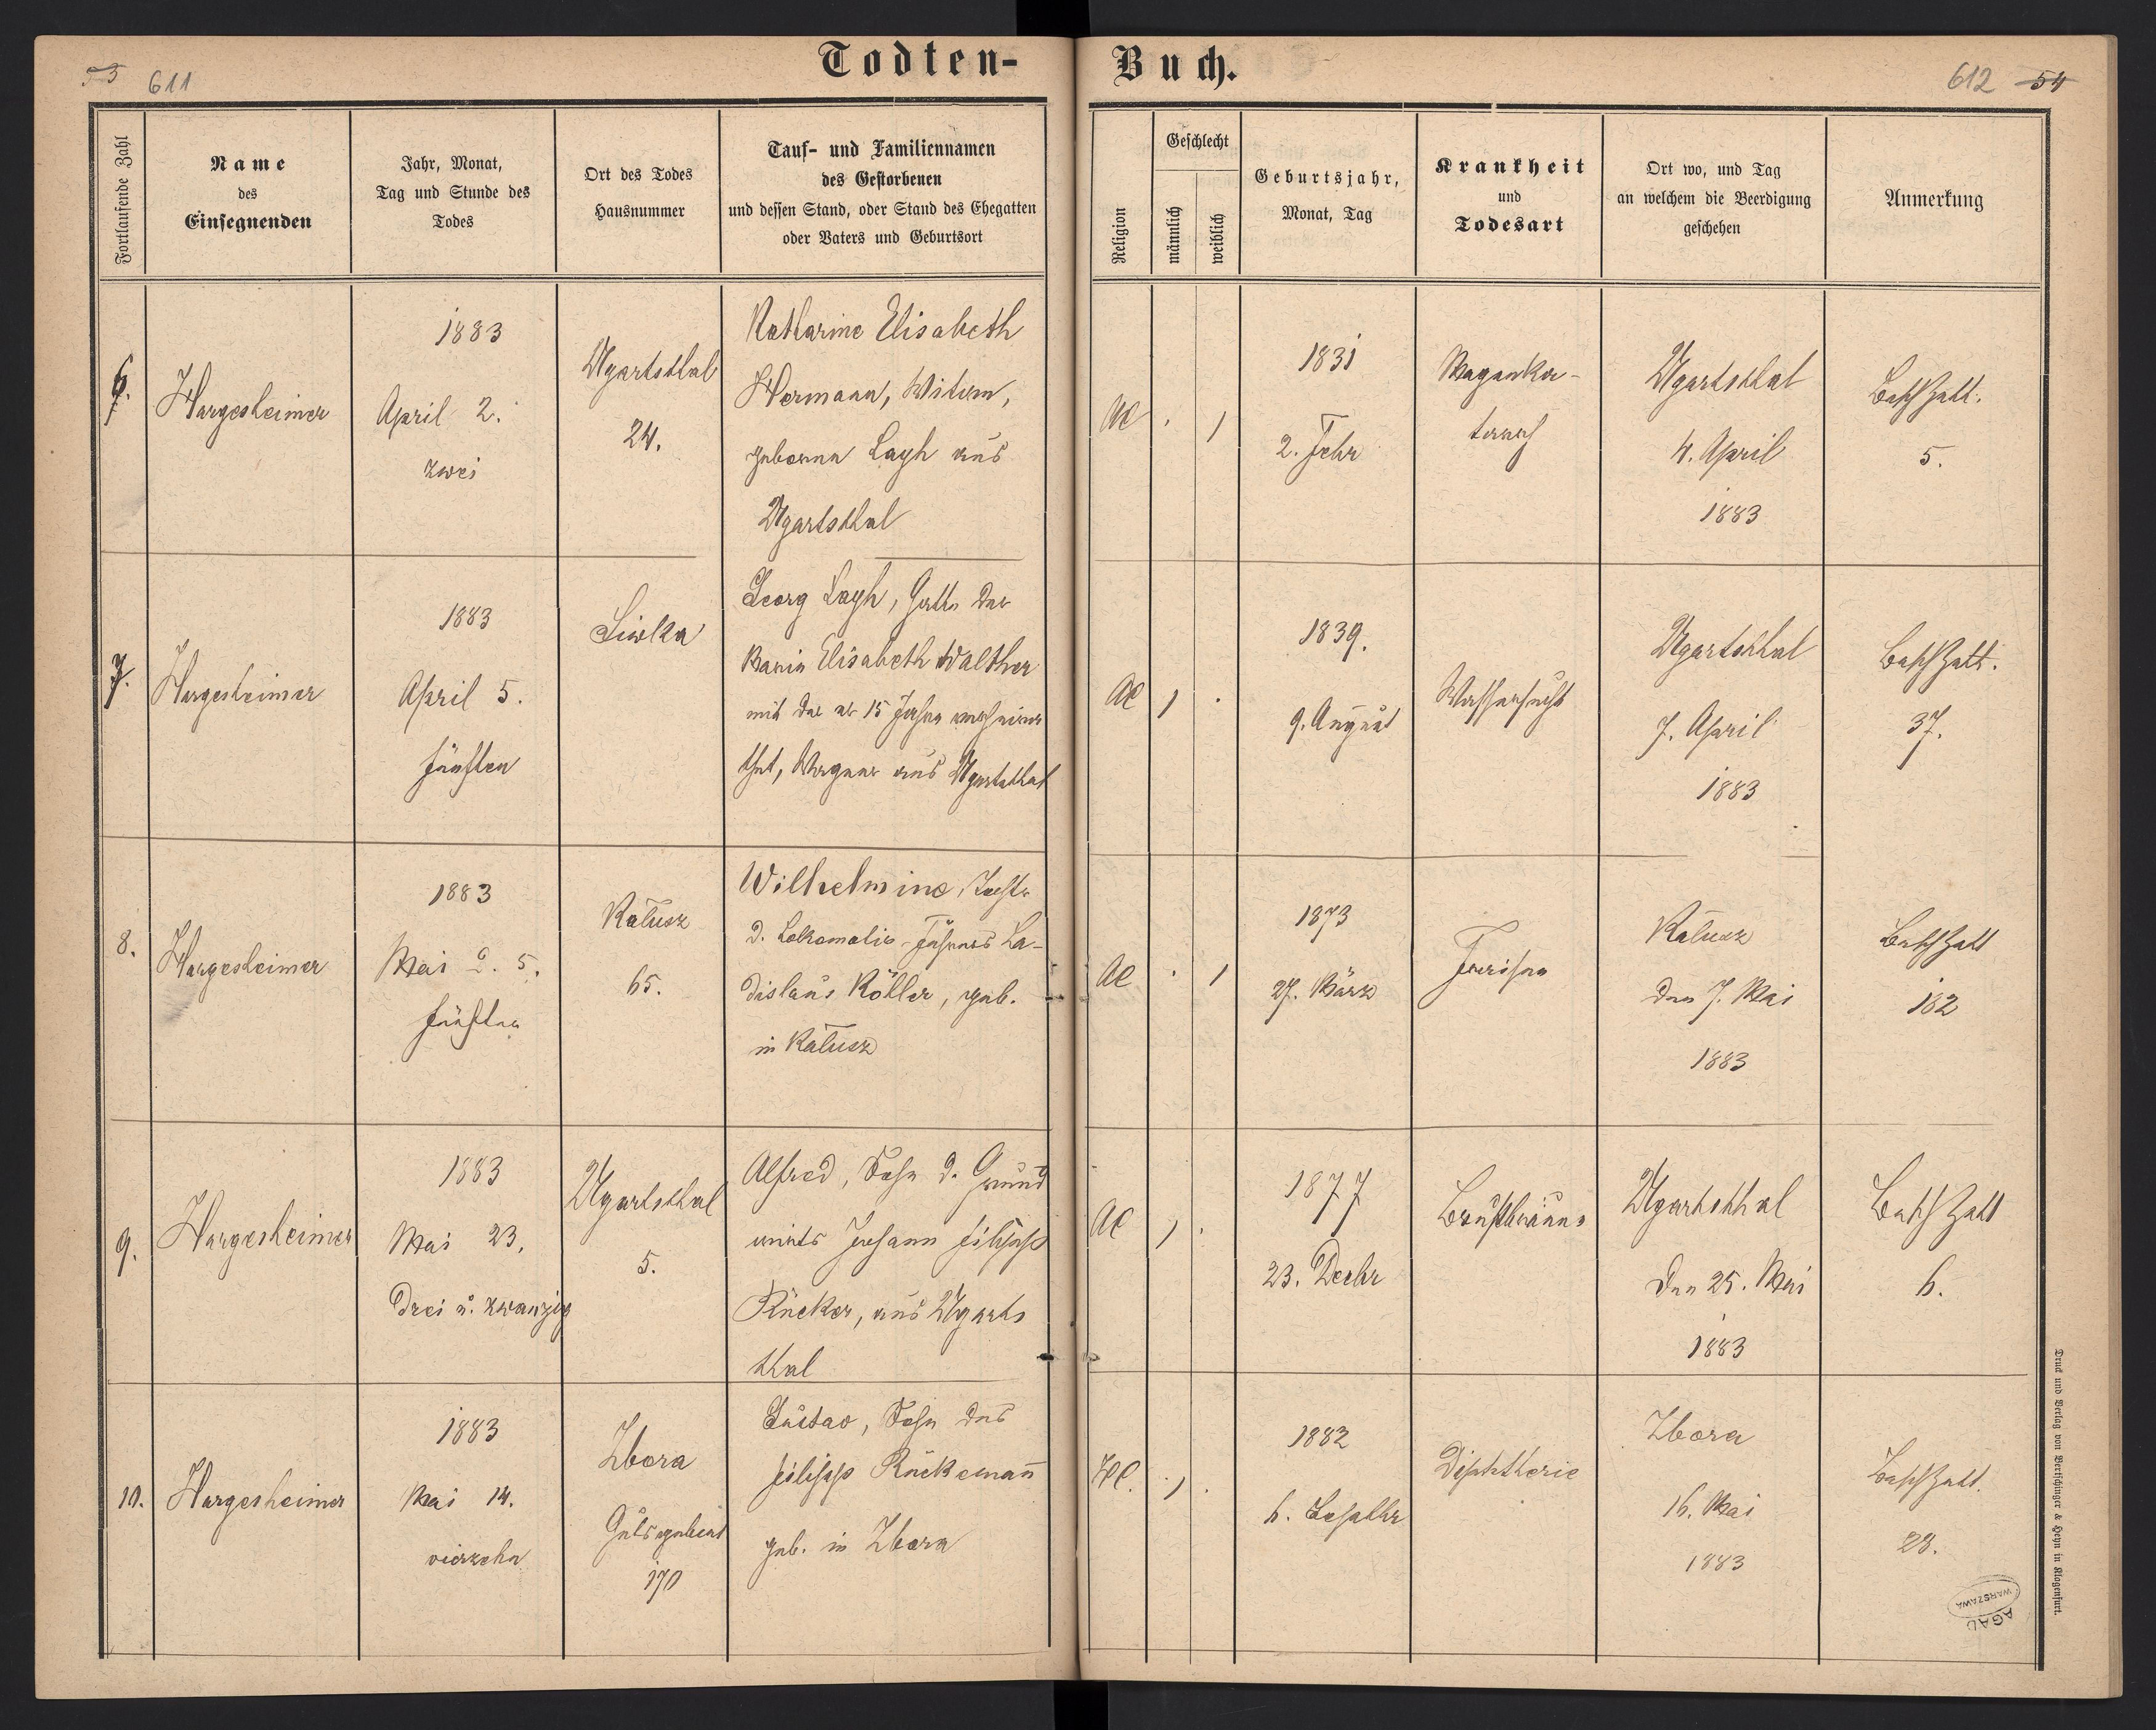 Todten-
Buch.
53 611
612 54
Fortlaufende Zahl
Name
des
Einsegnenden
Jahr, Monat,
Tag und Stunde des
Todes
Ort des Todes
Hausnummer
Tauf- und Familiennamen
des Gestorbenen
und dessen Stand, oder Stand des Ehegatten
oder Vaters und Geburtsort
Religion
Geschlecht
männlich
weiblich
Geburtsjahr,
Monat, Tag
Krankheit
und
Todesart
Ort wo, und Tag
an welchem die Beerdigung
geschehen
Anmerkung
6.
Hargesheimer
1883
April 2.
zwei
Ugartsthal
24.
Katharine Elisabeth
Hermann, Witwe,
geborene Layh aus
Ugartsthal
AC
1
1831
2. Febr
Magenka-
tarrh
Ugartsthal
4. April
1883
Besch Zatt.
5.
7.
Hargesheimer
1883
April 5.
fünften
Siwka
Georg Layh, Gatte der
Maria Elisabeth Walther
mit der er 15 Jahre verheira
thet, Wagner aus Ugartsthal
AC
1
1839.
9. August
Wassersucht
Ugartsthal
7. April
1883
Besch Zatt.
37.
8.
Hargesheimer
1883
Mai d. 5.
fünften
Kałusz
65.
Wilhelmine, Tochter
d. Lokomotiv-Führers La-
dislaus Köller, geb.
in Kałusz
AC
1
1873
27. März
Kałusz
den 7. Mai
1883
Besch Zatt
182
9.
Hargesheimer
1883
Mai 23.
drei u. zwanzig
Ugartsthal
5.
Alfred, Sohn d. Grund
wirts Johann Filipp
Rücker, aus Ugarts
thal
AC
1
1877
23. Decbr
Brustbräune
Ugartsthal
den 25. Mai
1883
Besch Zatt
6.
10.
Hargesheimer
1883
Mai 14.
vierzehn
Zbora
Gutsgebiet
170
Gustav, Sohn des
Filipp Rückemann
geb. in Zbora
HC.
1
1882
Diphtherie
Zbora
16. Mai
1883
Besch Zatt.
28.
AGAD
WARSZAWA
Druck und Verlag von Bertschinger & Heyn in Klagenfurt.